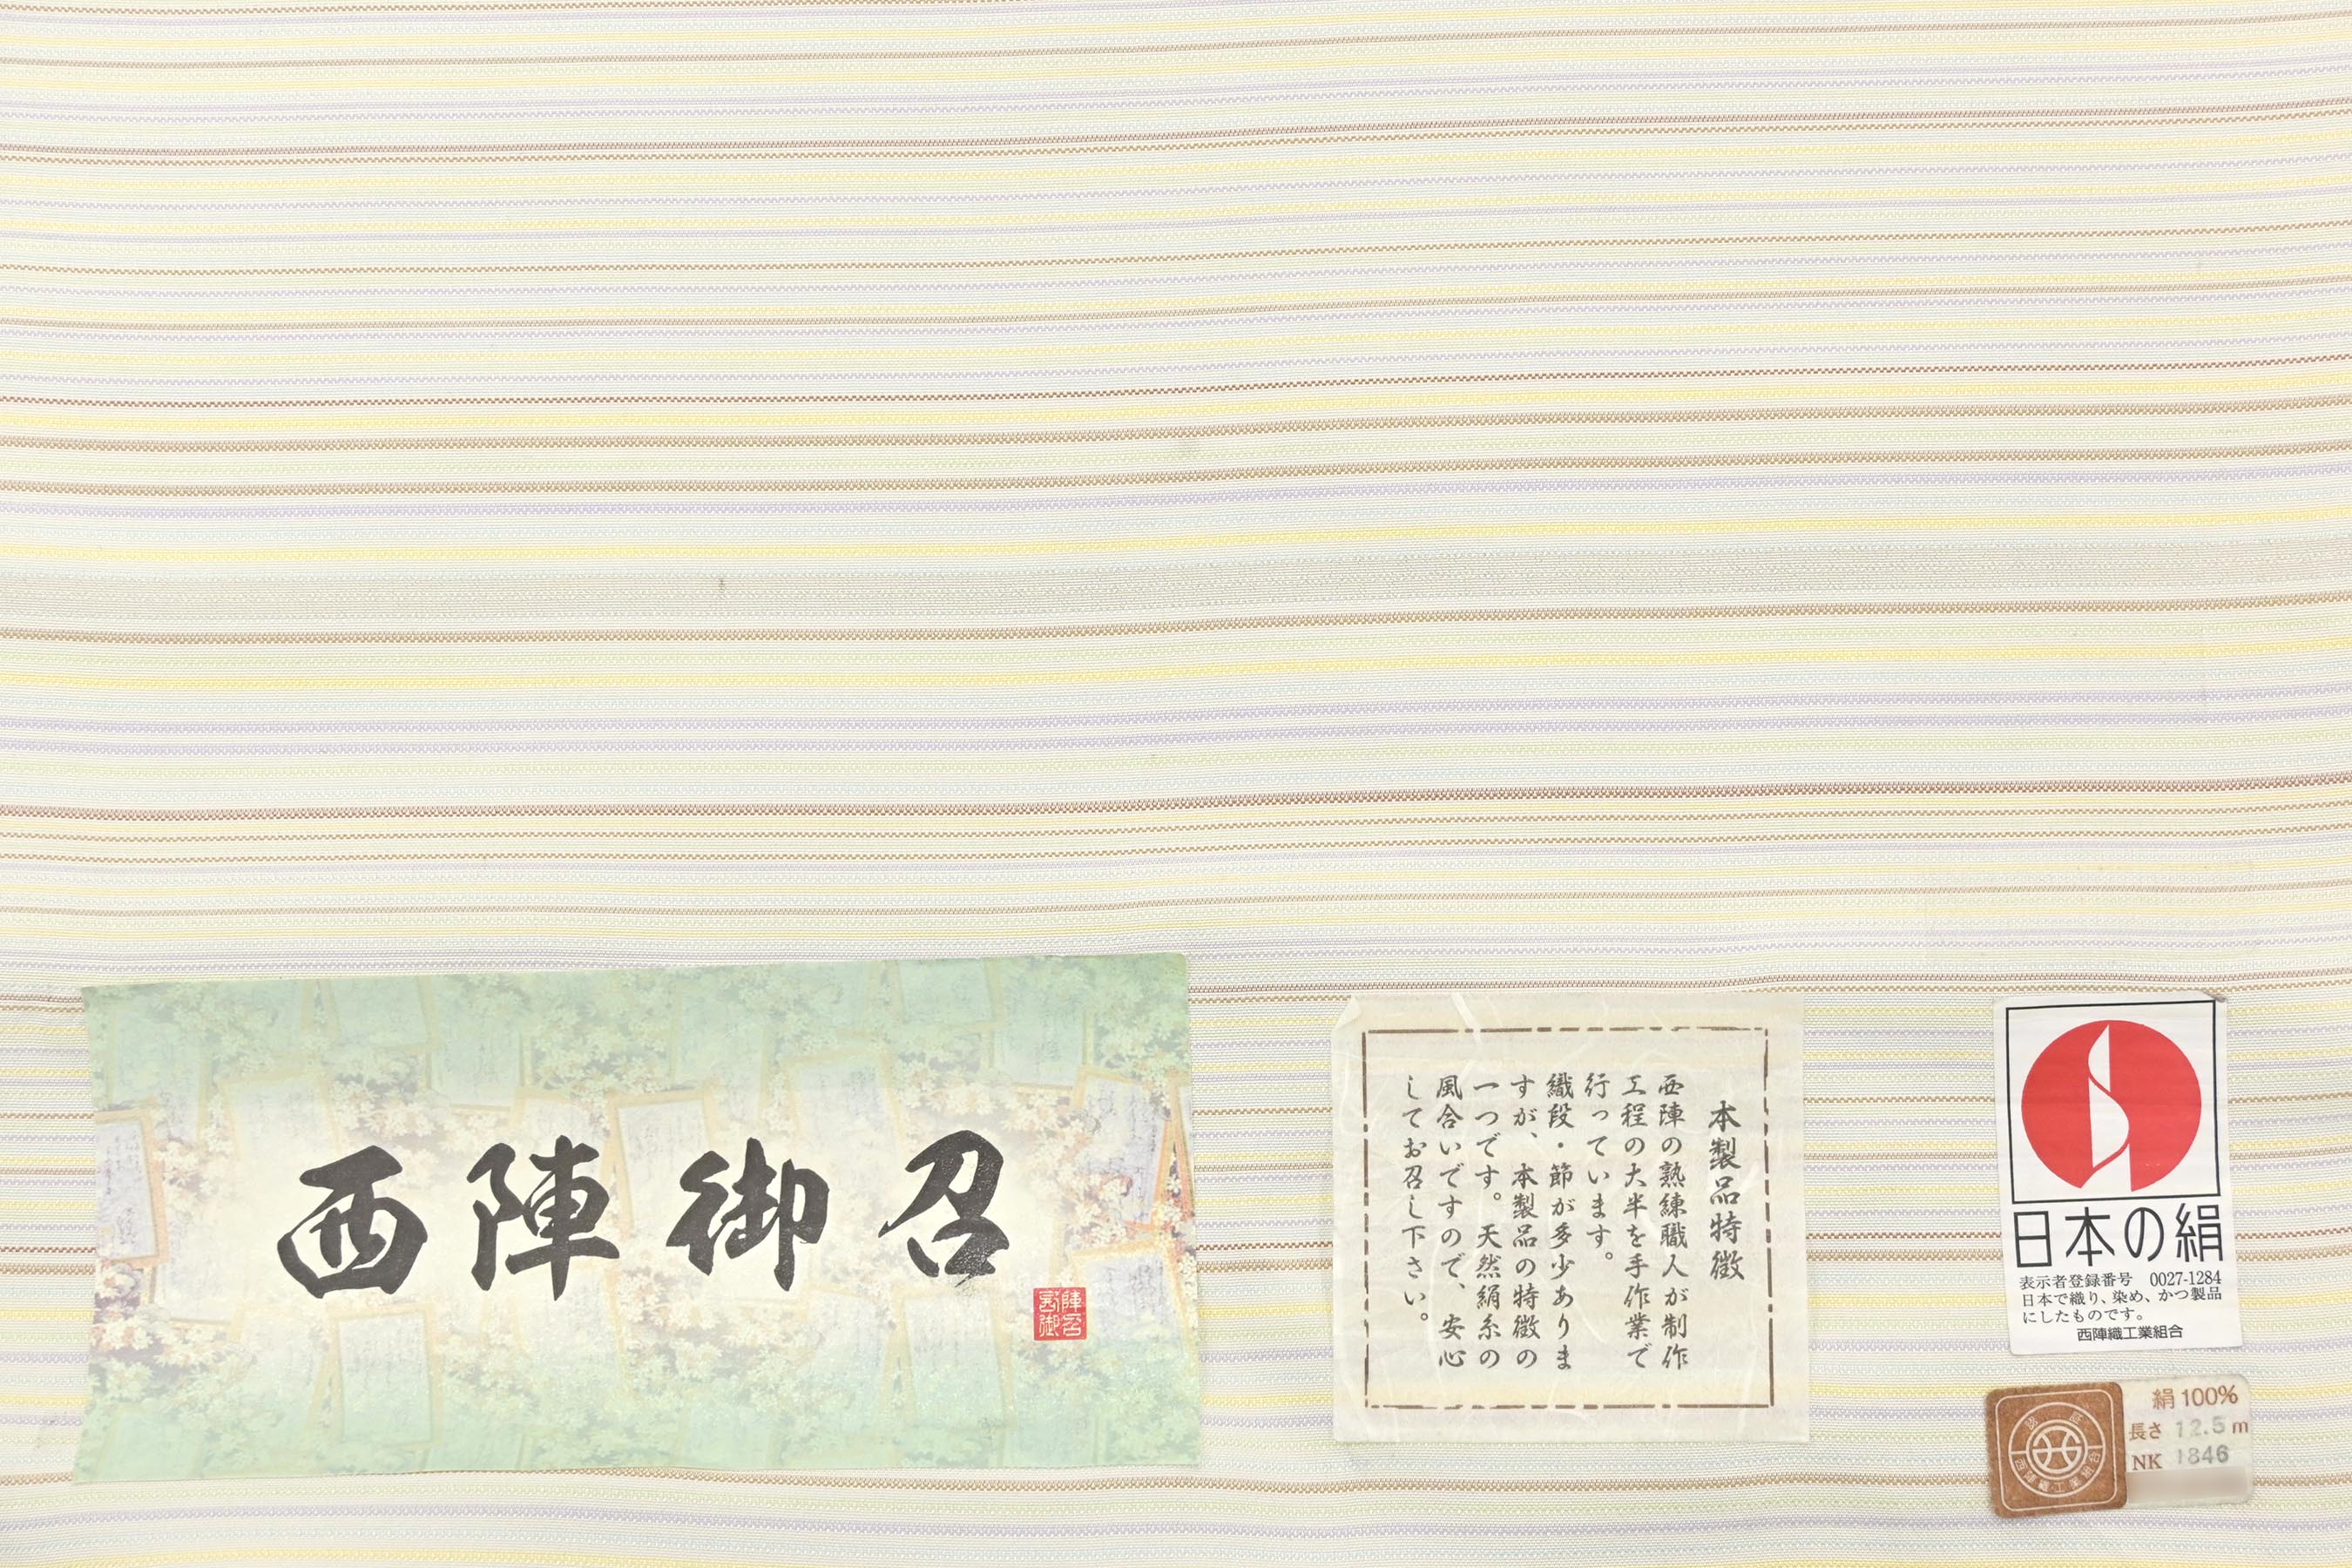 西陣御召
西陣
御召
本製品特徴
西陣の熟練職人が制作
工程の大半を手作業で
行っています。
織段・節が多少ありま
すが、本製品の特徴の
一つです。天然絹糸の
風合いですので、安心
してお召し下さい。
日本の絹
表示者登録番号 0027-1284
日本で織り、染め、かつ製品
にしたものです。
西陣織工業組合
絹100%
長さ 12.5 m
NK 1846
西陣織工業組合